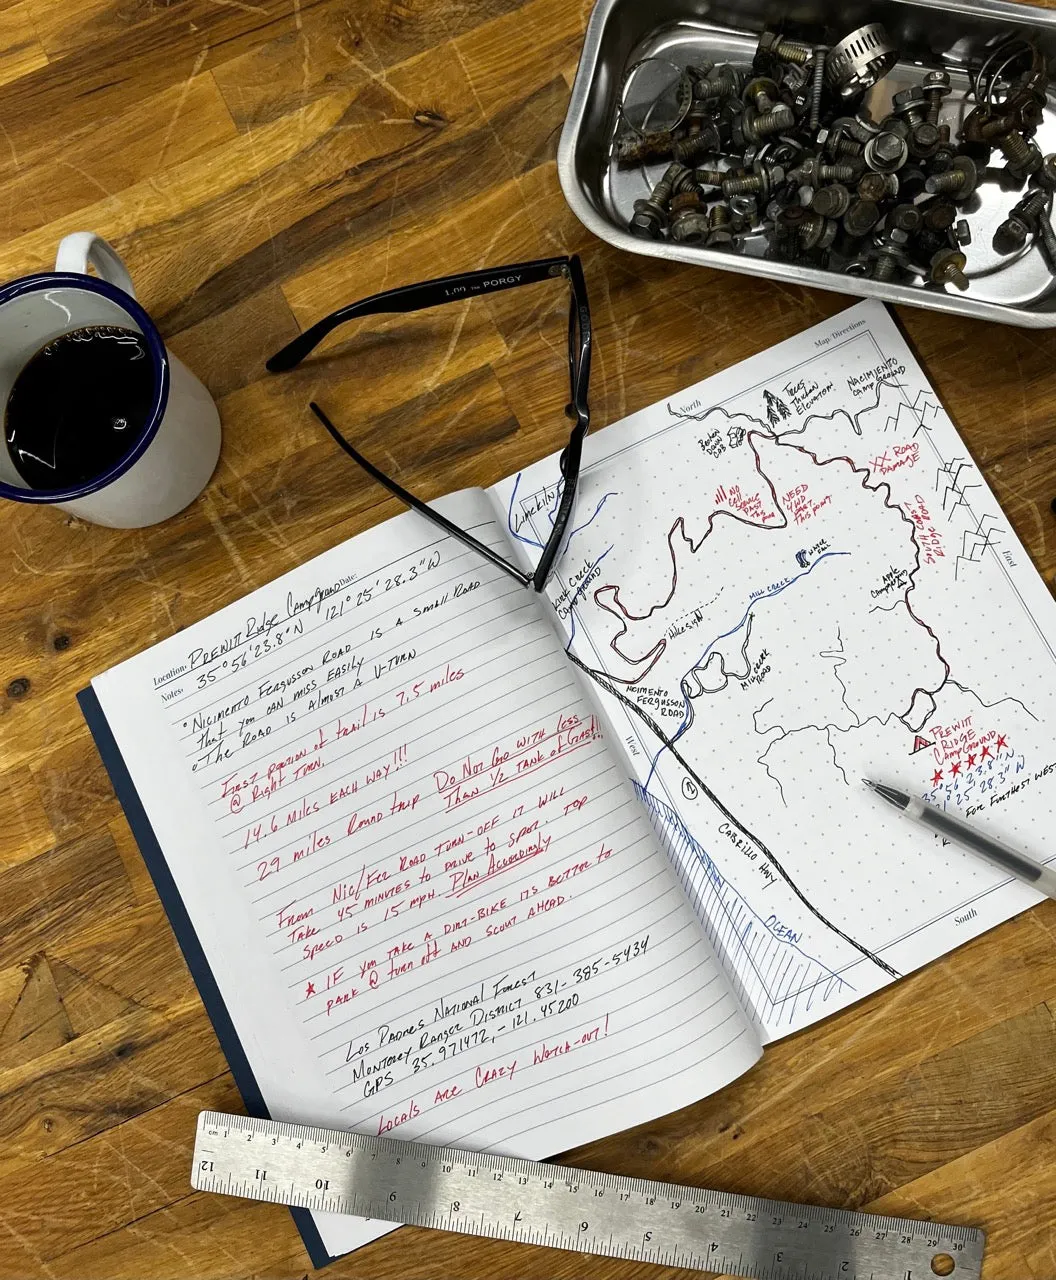 1.00 THE PORGY
Location: Prewitt Ridge Campground Date:
Notes: 35°56'23.8"N 121°25'28.3"W
• Nicimento Fergusson Road is a small road
that you can miss easily
• The road is almost a U-turn
First portion of trail is 7.5 miles
@ right turn.
14.6 miles each way!!!
29 miles round trip Do not go with less
than 1/2 tank of gas!!
From Nic/Fer Road turn-off it will
take 45 minutes to drive to spot. Top
speed is 15 mph. Plan accordingly
★ If you take a dirt-bike its better to
park @ turn off and scout ahead.
Los Padres National Forest
Monterey Ranger District 831-385-5434
GPS 35.971472, -121.45200
Locals are crazy watch-out!
Map/Directions
North
East
South
West
Trees
Thicken
Elevation
Nacimiento
Campground
Broken
Down
Cab
XX Road
Damage
No
Cell
Service
Past
This
Need
4WD
Past
This point
South Coast
Ridge Road
Apple
Camp
Limekiln
Kirk Creek
Campground
Mill Creek
Water
Fall
Mill Creek
Road
Nicimento
Fergusson
Road
Prewitt
Ridge
Campground
35°56'23.8"N
121°25'28.3"W
For furthest west
1
Cabrillo Hwy
Ocean
cm 1 2 3 4 5 6 7 8 9 10 11 12 13 14 15 16 17 18 19 20 21 22 23 24 25 26 27 28 29 30
12 11 10 9 8 7 6 5 4 3 2 1